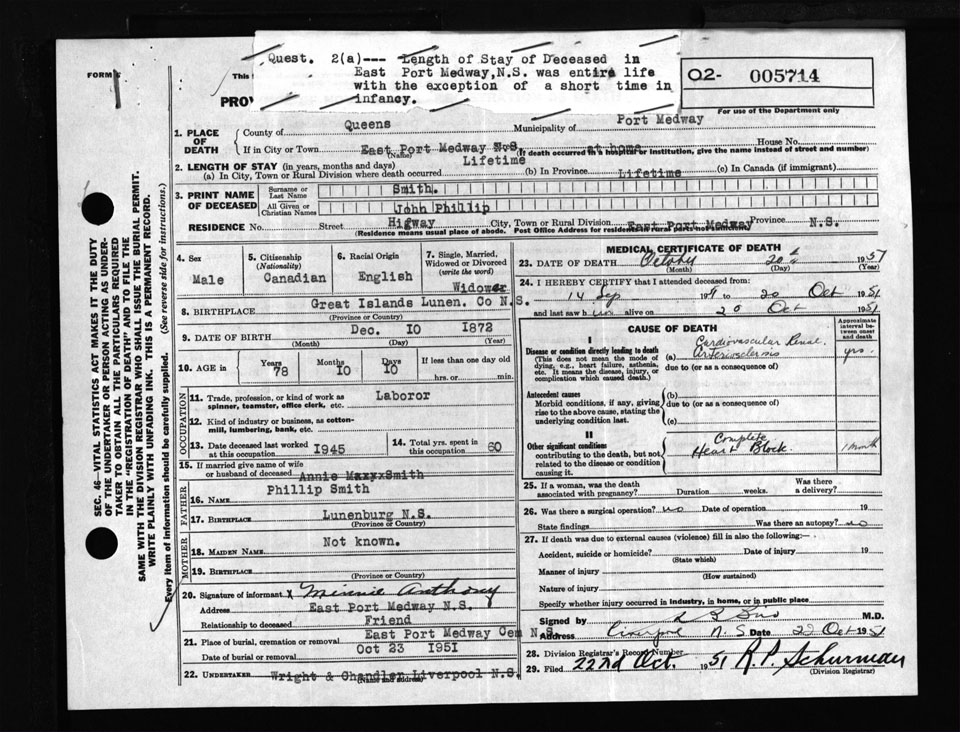 Quest. 2(a)--- Length of Stay of Deceased in
East Port Medway, N.S. was entire life
with the exception of a short time in
infancy.
O2- 005714
For use of the Department only
FORM
This
PROV
1. PLACE OF DEATH
County of Queens Municipality of Port Medway
If in City or Town East Port Medway N.S. at home House No.
(Name) (If death occurred in a hospital or institution, give the name instead of street and number)
2. LENGTH OF STAY (in years, months and days)
(a) In City, Town or Rural Division where death occurred Lifetime (b) In Province Lifetime (c) In Canada (if immigrant)
3. PRINT NAME OF DECEASED
Surname or Last Name Smith.
All Given or Christian Names John Phillip
RESIDENCE No. Street Higway City, Town or Rural Division East Port Medway Province N.S.
(Residence means usual place of abode. Post Office Address for residents of rural parts not
4. Sex Male
5. Citizenship (Nationality) Canadian
6. Racial Origin English
7. Single, Married, Widowed or Divorced (write the word) Widower
8. BIRTHPLACE Great Islands Lunen. Co N.S.
(Province or Country)
9. DATE OF BIRTH Dec. 10 1872
(Month) (Day) (Year)
10. AGE in Years 78 Months 10 Days 10 If less than one day old hrs. or min.
OCCUPATION
11. Trade, profession, or kind of work as spinner, teamster, office clerk, etc. Laboror
12. Kind of industry or business, as cotton-mill, lumbering, bank, etc.
13. Date deceased last worked at this occupation 1945
14. Total yrs. spent in this occupation 60
15. If married give name of wife or husband of deceased Annie Maxyx Smith
FATHER
16. NAME Phillip Smith
17. BIRTHPLACE Lunenburg N.S.
(Province or Country)
MOTHER
18. MAIDEN NAME Not known.
19. BIRTHPLACE
(Province or Country)
20. Signature of informant X Minnie Anthony
Address East Port Medway N.S.
Relationship to deceased Friend
21. Place of burial, cremation or removal East Port Medway Cem N.S.
Date of burial or removal Oct 23 1951
22. UNDERTAKER Wright & Chandler Liverpool N.S.
(Name and address)
MEDICAL CERTIFICATE OF DEATH
23. DATE OF DEATH October 20th 1951
(Month) (Day) (Year)
24. I HEREBY CERTIFY that I attended deceased from:
14 Sep 1951 to 20 Oct 1951
and last saw h im alive on 20 Oct 1951
CAUSE OF DEATH
Approximate interval between onset and death
I
Disease or condition directly leading to death
(This does not mean the mode of dying, e.g., heart failure, asthenia, etc. It means the disease, injury, or complication which caused death.)
(a) Cardiovascular Renal Arteriosclerosis yrs.
due to (or as a consequence of)
Antecedent causes
Morbid conditions, if any, giving rise to the above cause, stating the underlying condition last.
(b)
due to (or as a consequence of)
(c)
II
Other significant conditions
contributing to the death, but not related to the disease or condition causing it.
Complete Heart Block. 1 month
25. If a woman, was the death associated with pregnancy? Duration weeks. Was there a delivery?
26. Was there a surgical operation? no Date of operation 19
State findings Was there an autopsy? no
27. If death was due to external causes (violence) fill in also the following:—
Accident, suicide or homicide? Date of injury 19
(State which)
Manner of injury
(How sustained)
Nature of injury
Specify whether injury occurred in industry, in home, or in public place
Signed by M.D.
Address Liverpool N.S. Date 22 Oct 1951
28. Division Registrar's Record Number
29. Filed 22nd Oct. 1951 R.P. Schurman
(Division Registrar)
SEC. 46—VITAL STATISTICS ACT MAKES IT THE DUTY
OF THE UNDERTAKER OR PERSON ACTING AS UNDER-
TAKER TO OBTAIN ALL THE PARTICULARS REQUIRED
IN THE "REGISTRATION OF DEATH" AND TO FILE THE
SAME WITH THE DIVISION REGISTRAR WHO SHALL ISSUE THE BURIAL PERMIT.
WRITE PLAINLY WITH UNFADING INK. THIS IS A PERMANENT RECORD.
Every item of information should be carefully supplied. (See reverse side for instructions.)